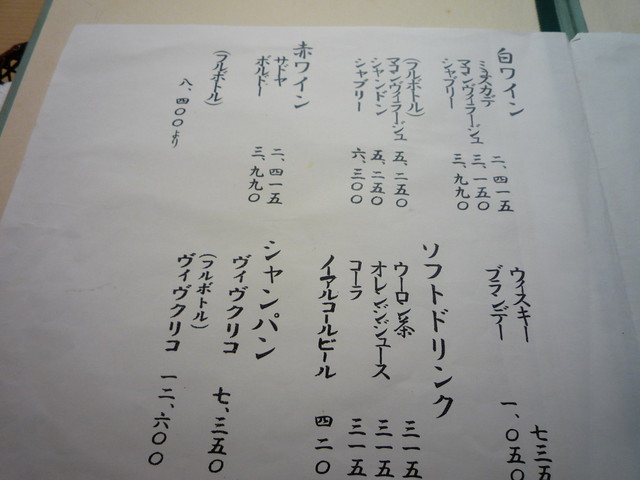 白ワイン
ミュスカデ 二、四一五
マコンヴィラージュ 三、一五〇
シャブリー 三、九九〇
(フルボトル)
マコンヴィラージュ 五、二五〇
シャンドン 五、二五〇
シャブリー 六、三〇〇
赤ワイン
サトヤ 二、四一五
ボルドー 三、九九〇
(フルボトル)
八、四〇〇より
ウィスキー 七三五
ブランデー 一、〇五〇
ソフトドリンク
ウーロン茶 三一五
オレンジジュース 三一五
コーラ 三一五
ノーアルコールビール 四二〇
シャンパン
ヴィヴクリコ 七、三五〇
(フルボトル)
ヴィヴクリコ 一二、六〇〇